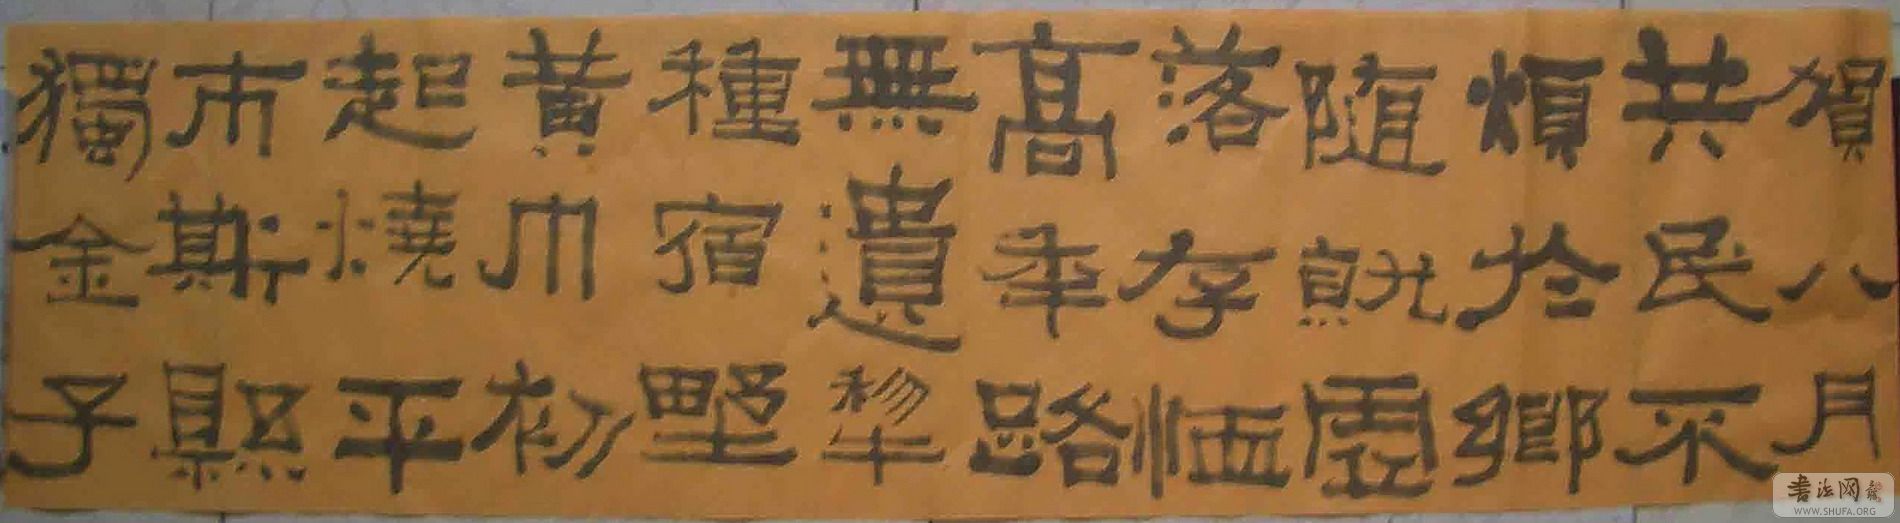 賀八月
共民不
煩於鄉
隨就虛
落存恤
高年路
無遺犂
種宿野
黃巾初
起燒平
市斯縣
獨全子
書法网
WWW.SHUFA.ORG